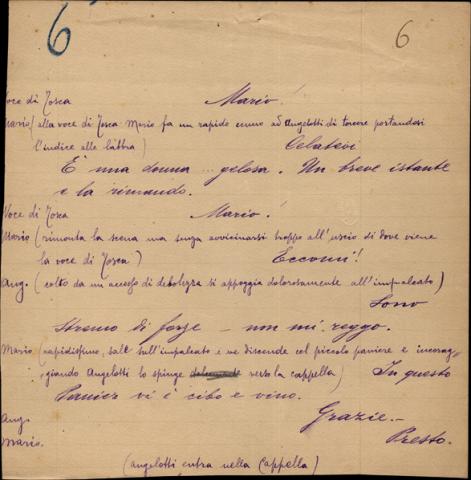 6 6
Voce di Tosca Mario!
Mario (alla voce di Tosca Mario fa un rapido cenno ad Angelotti di tacere portandosi
l'indice alle labbra) Celatevi
È una donna... gelosa. Un breve istante
e la rimando.
Voce di Tosca Mario!
Mario (rimonta la scena ma senza avvicinarsi troppo all'uscio di dove viene
la voce di Tosca) Eccomi!
Ang. (colto da un accesso di debolezza si appoggia dolorosamente all'impalcato)
Sono
stremo di forze - non mi reggo.
Mario (rapidissimo, sale sull'impalcato e ne discende col piccolo paniere e incorag-
giando Angelotti lo spinge verso la cappella) In questo
Panier vi è cibo e vino.
Ang. Grazie.-
Mario. Presto.
(Angelotti entra nella Cappella)